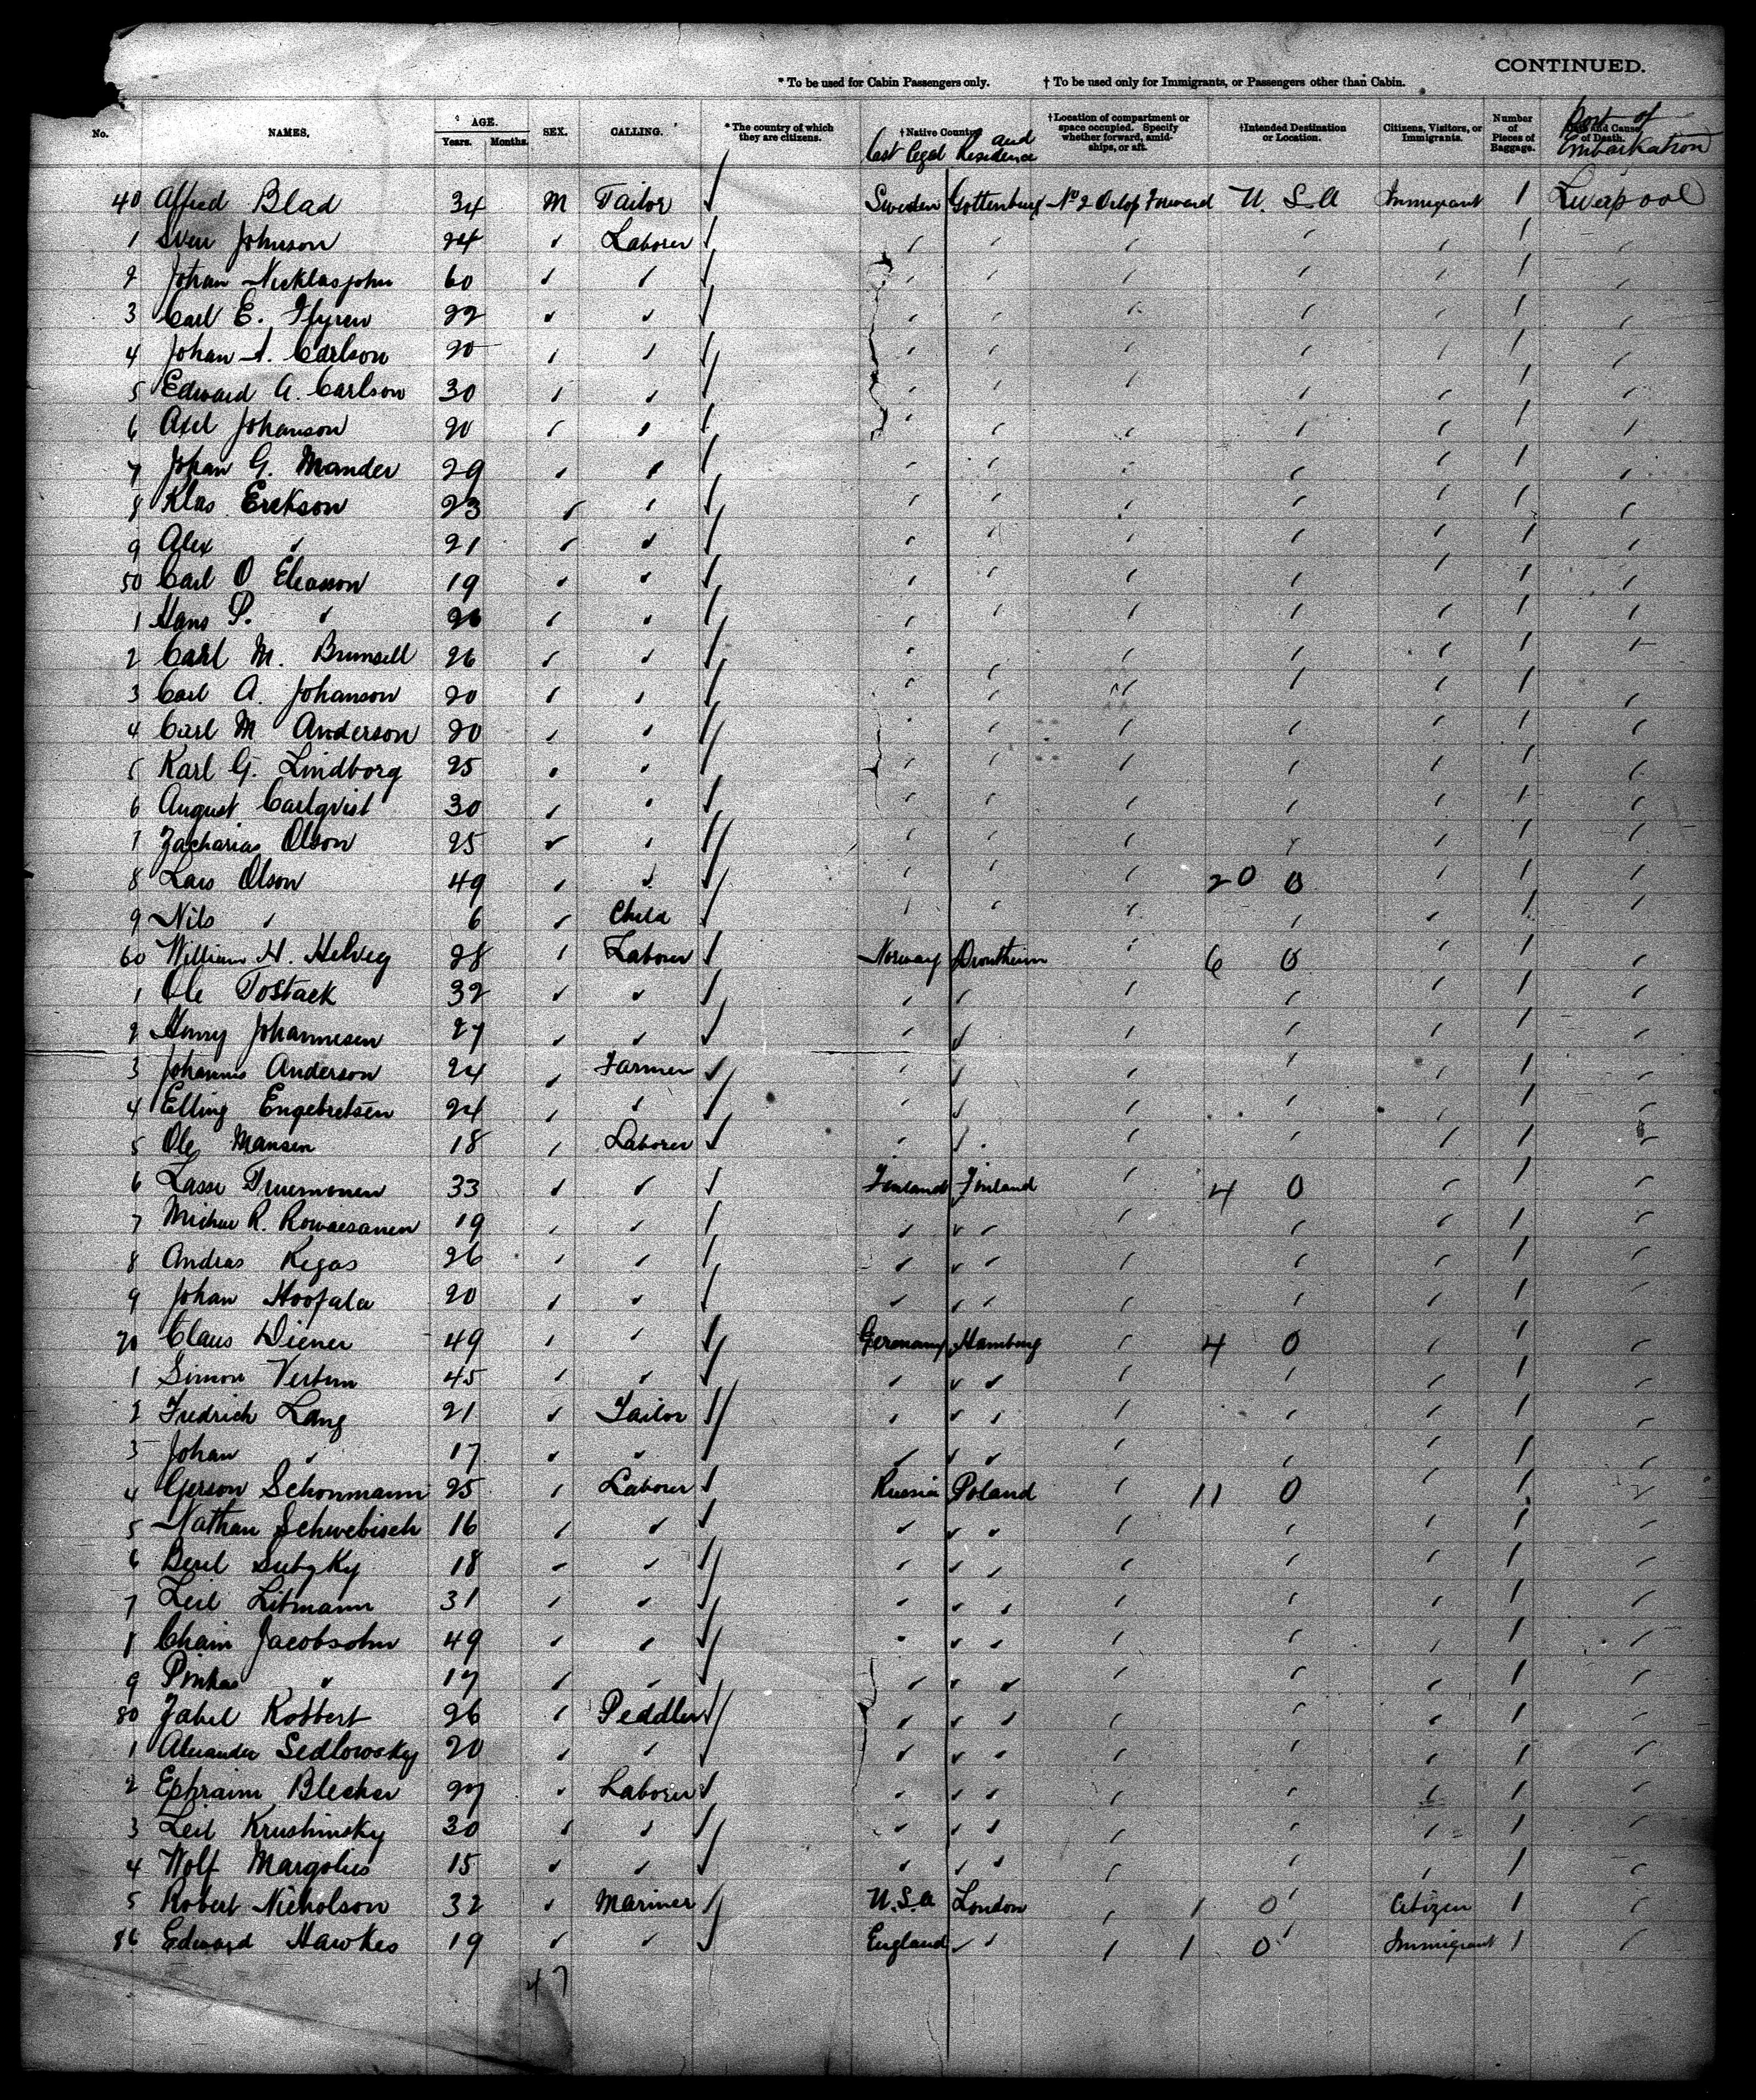 CONTINUED.
* To be used for Cabin Passengers only. † To be used only for Immigrants, or Passengers other than Cabin.
No. NAMES, AGE. Years. Months. SEX. CALLING. * The country of which they are citizens. † Native Country and last legal Residence †Location of compartment or space occupied. Specify whether forward, amid-ships, or aft. †Intended Destination or Location. Citizens, Visitors, or Immigrants. Number of Pieces of Baggage. Port of Embarkation
40 Alfred Blad 34 M Tailor Sweden Gottenburg No 2 Orlop Forward U.S.A Immigrant 1 Liverpool
1 Sven Johnson 24 " Laborer " " " " " 1 "
2 Johan Nicklasjohn 60 " " " " " " " 1 "
3 Carl E. 22 " " " " " " " 1 "
4 Johan A. Carlson 20 " " " " " " " 1 "
5 Edward A. Carlson 30 " " " " " " " 1 "
6 Axel Johanson 20 " " " " " " " 1 "
7 Johan G. Mander 29 " " " " " " " 1 "
8 Klas Erekson 23 " " " " " " " 1 "
9 Alex " 21 " " " " " " " 1 "
50 Carl O Eleasson 19 " " " " " " " 1 "
1 Hans P. " 26 " " " " " " " 1 "
2 Carl M. Brunsell 26 " " " " " " " 1 "
3 Carl A. Johanson 20 " " " " " " " 1 "
4 Carl M Anderson 20 " " " " " " " 1 "
5 Karl G. Lindborg 25 " " " " " " " 1 "
6 August Carlqvist 30 " " " " " " " 1 "
7 Zacharias Olson 25 " " " " " " " 1 "
8 Lars Olson 49 " " " " " 20 0 " 1 "
9 Nils " 6 " Child " " " " " 1 "
60 William H. Helvig 28 " Laborer Norway Drontheim " 6 0 " 1 "
1 Ole Tostaek 32 " " " " " " " 1 "
2 Henry Johannesen 27 " " " " " " " 1 "
3 Johannes Anderson 24 " Farmer " " " " " 1 "
4 Elling Engebretsen 24 " " " " " " " 1 "
5 Ole Mansen 18 " Laborer " " " " " 1 "
6 Lasse 33 " " Finland Finland " 4 0 " 1 "
7 R. 19 " " " " " " " 1 "
8 Andras Kegas 26 " " " " " " " 1 "
9 Johan Hoofala 20 " " " " " " " 1 "
70 Claus Diener 49 " " Germany Hamburg " 4 0 " 1 "
1 Simon 45 " " " " " " " 1 "
2 Fredrich Lang 21 " Tailor " " " " " 1 "
3 Johan " 17 " " " " " " " 1 "
4 Gerson Schonmann 25 " Laborer Russia Poland " 11 0 " 1 "
5 Nathan Schwebisch 16 " " " " " " " 1 "
6 18 " " " " " " " 1 "
7 Leil Litmann 31 " " " " " " " 1 "
8 Chaim Jacobsohn 49 " " " " " " " 1 "
9 Pinkas " 17 " " " " " " " 1 "
80 Robbert 26 " Peddler " " " " " 1 "
1 Alexander Sedlowsky 20 " " " " " " " 1 "
2 Ephraim Blecher 27 " Laborer " " " " " 1 "
3 Leil Krushinsky 30 " " " " " " " 1 "
4 Wolf Margolies 15 " " " " " " " 1 "
5 Robert Nicholson 32 " Mariner U.S.A London " 1 0 " Citizen 1 "
86 Edward Hawkes 19 " " England " " 1 0 " Immigrant 1 "
47